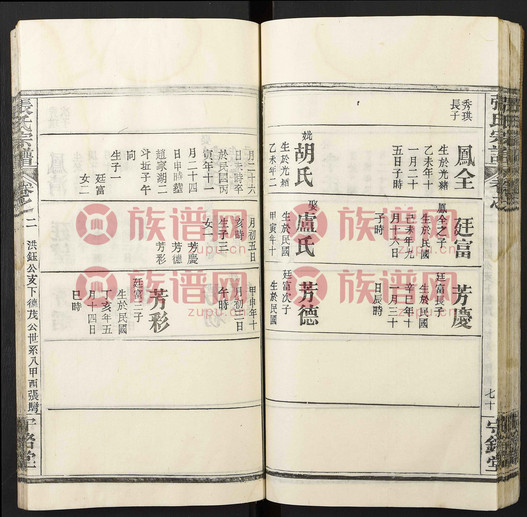 張氏宗譜
秀琪
長子
鳳全
生於光緒
乙未年十
一月二十
五日子時
妣
胡氏
生於光緒
乙未年二
月二十六
日未時卒
於民國丙
寅年十一
月二十四
日申時墓
趙家湖二
斗坵子午
向
生子一
廷富
女二
廷富
鳳全之子
生於民國
己未年九
月十六日
子時
娶
盧氏
生於民國
甲寅年十
月初五日
生子三
女一
芳慶
芳德
芳彩
芳慶
廷富長子
生於民國
辛巳年十
一月三十
日辰時
芳德
廷富次子
生於民國
甲申年十
月初三日
午時
芳彩
廷富三子
生於民國
丁亥年五
月十四日
巳時
七十
二 洪鈺公支下德茂公世系八甲西張
張氏宗譜
族譜网
zupu.cn